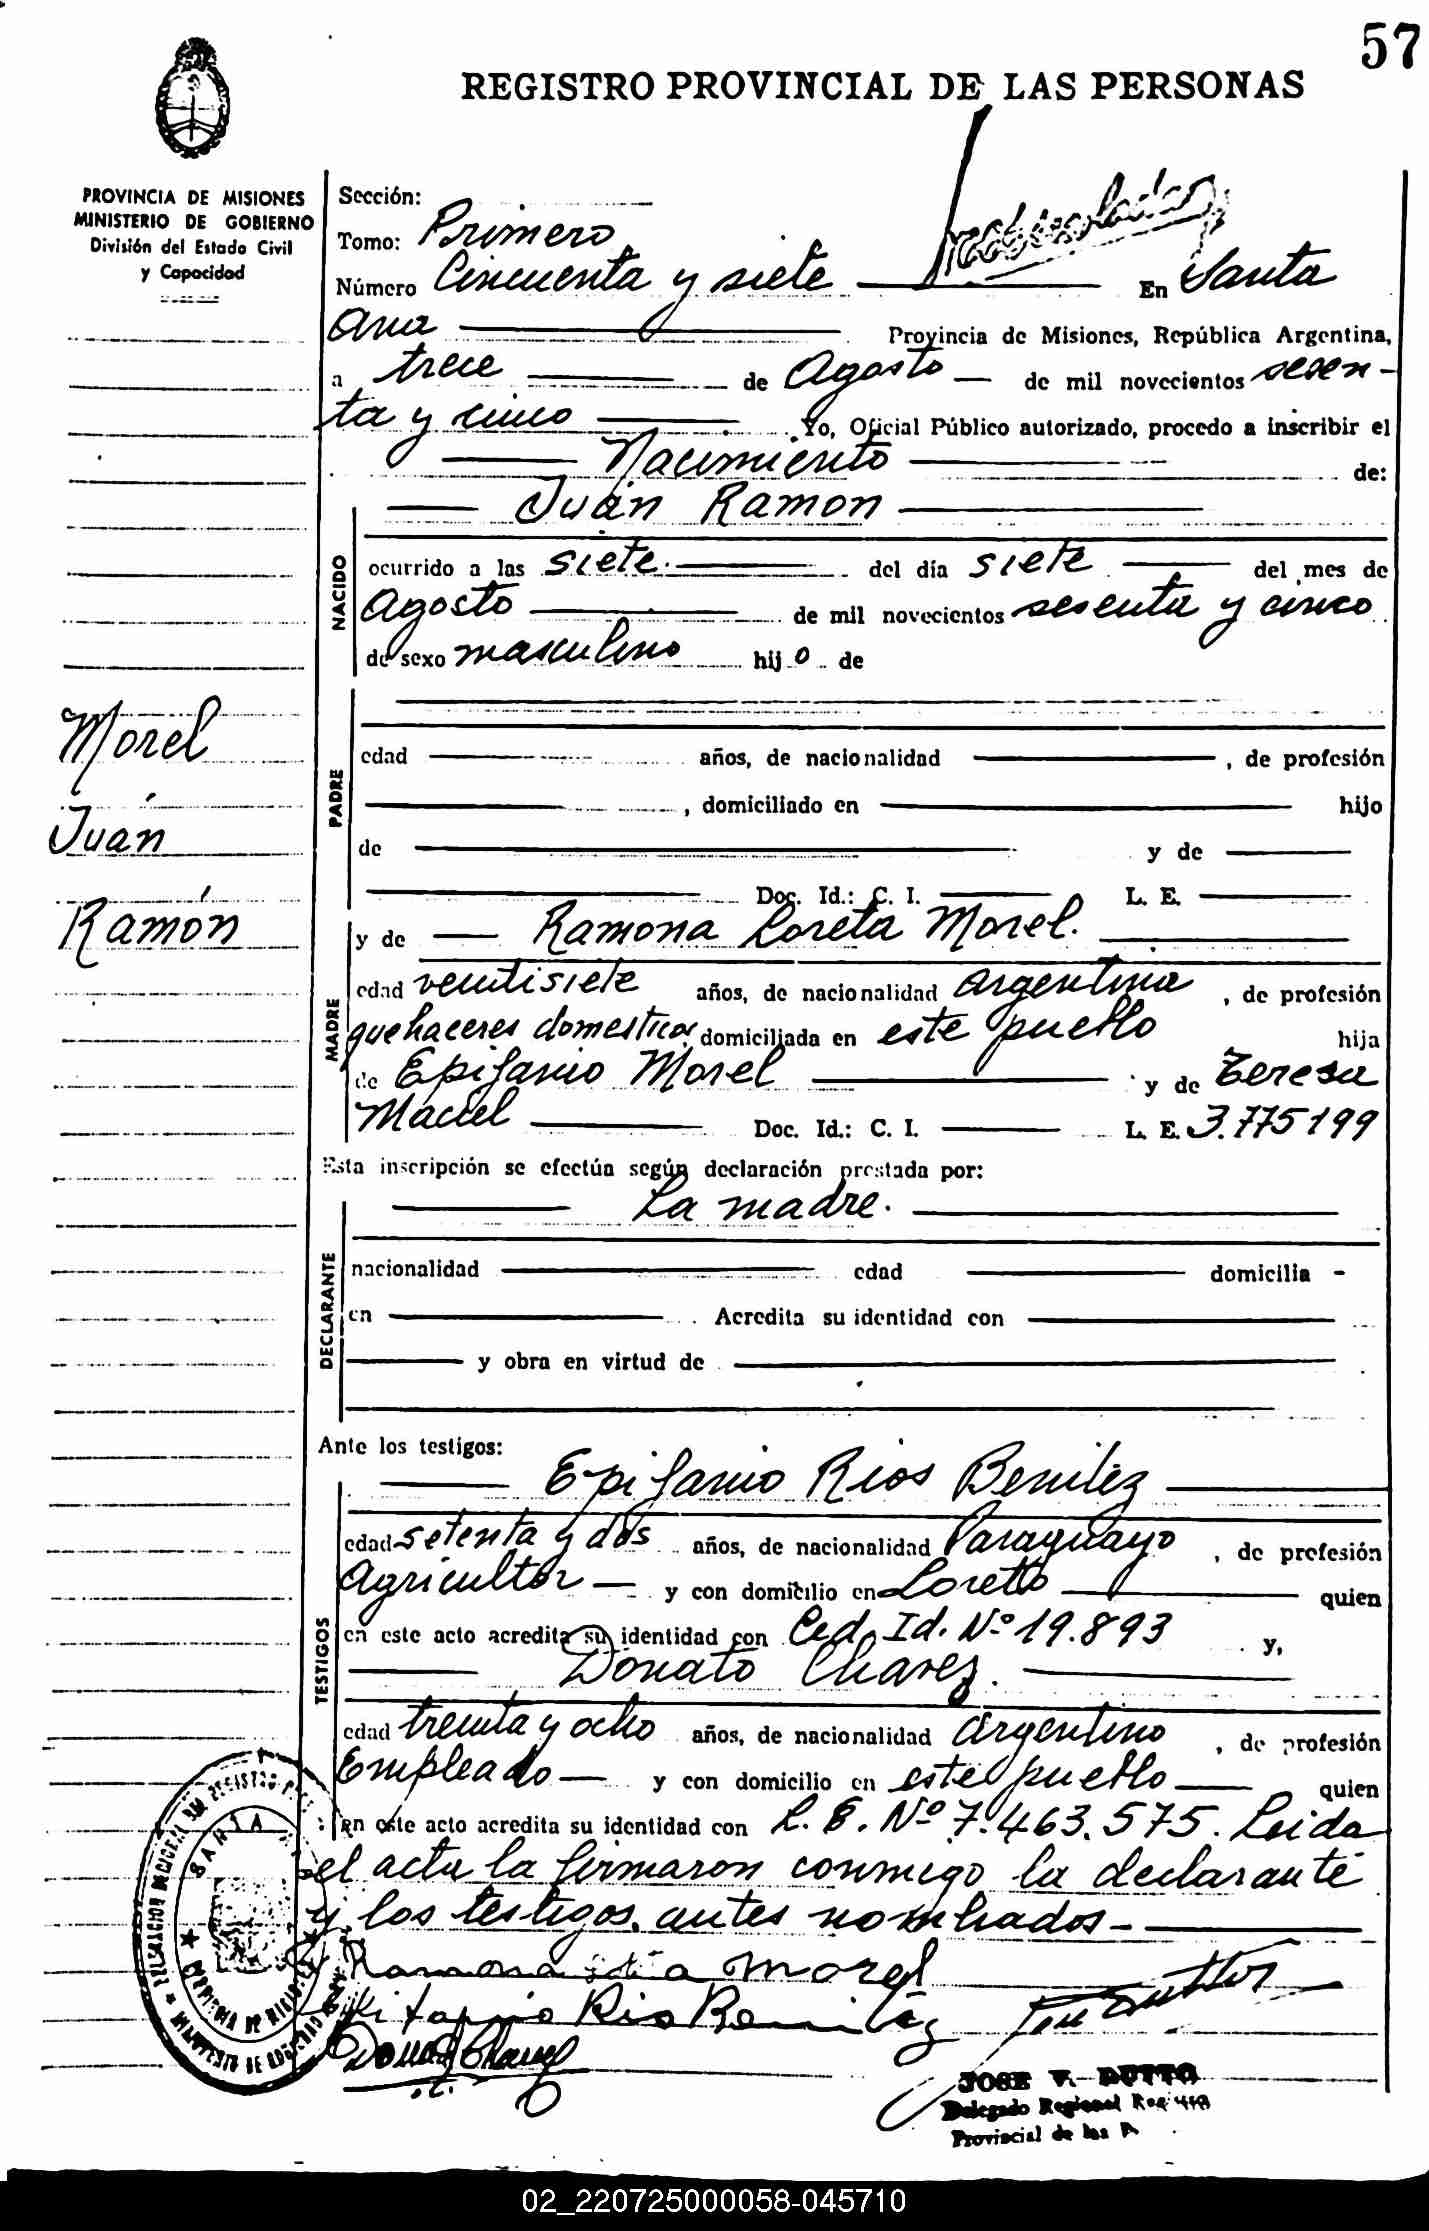 57
REGISTRO PROVINCIAL DE LAS PERSONAS
PROVINCIA DE MISIONES
MINISTERIO DE GOBIERNO
División del Estado Civil
y Capacidad
Sección:
Tomo: Primero
Número Cincuenta y siete En Santa
Ana Provincia de Misiones, República Argentina,
a trece de Agosto de mil novecientos sesen-
ta y cinco Yo, Oficial Público autorizado, procedo a inscribir el
Nacimiento de:
Juán Ramon
NACIDO
ocurrido a las siete. del día siete del mes de
Agosto de mil novecientos sesenta y cinco
de sexo masculino hij o de
Morel
Juán
Ramón
PADRE
edad años, de nacionalidad , de profesión
, domiciliado en hijo
de y de
Doc. Id.: C. I. L. E.
MADRE
y de Ramona Loreta Morel.
edad veintisiete años, de nacionalidad argentina , de profesión
quehaceres domesticos domiciliada en este pueblo hija
de Epifanio Morel y de Teresa
Maciel Doc. Id.: C. I. L. E. 3.775199
Esta inscripción se efectúa según declaración prestada por:
La madre.
DECLARANTE
nacionalidad edad domicilia -
en Acredita su identidad con
y obra en virtud de
Ante los testigos:
TESTIGOS
Epifanio Rios Benitez
edad setenta y dos años, de nacionalidad Paraguayo , de profesión
Agricultor y con domicilio en Loreto quien
en este acto acredita su identidad con Ced. Id. Nº 19.893 y,
Donato Chavez.
edad treinta y ocho años, de nacionalidad argentino , de profesión
Empleado y con domicilio en este pueblo quien
en este acto acredita su identidad con L. E. Nº 7.463.575. Leida
el acta la firmaron conmigo la declarante
y los testigos, antes nombrados-
Ramona Morel
Rio Benitez
Donato Chavez
JOSE V. DUTTO
Delegado Regional
Provincial de las P
02_220725000058-045710